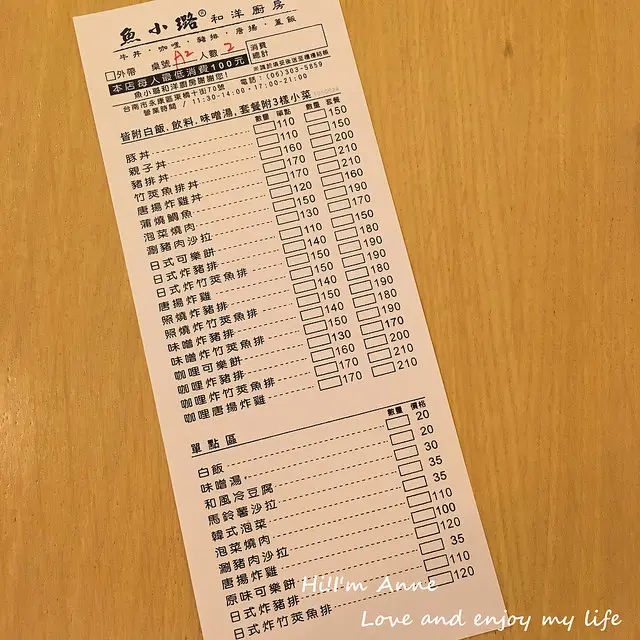 魚小璐® 和洋廚房
牛丼．咖哩．豬排．唐揚．蓋飯
□外帶 桌號 A2 人數 2 消費總計
本店每人最低消費100元 ※請於填妥後送至櫃檯結帳
魚小璐和洋廚房謝謝您! 電話：(06)303-5859
台南市永康區東橋十街70號
營業時間 / 11:30-14:00．17:00-21:00
皆附白飯,飲料,味噌湯,套餐附3樣小菜
數量 單點 數量 套餐
豚丼 110 150
親子丼 110 150
豬排丼 160 200
竹莢魚排丼 170 210
唐揚炸雞丼 170 210
蒲燒鯛魚 120 160
泡菜燒肉 150 190
涮豬肉沙拉 130 170
日式可樂餅 110 150
日式炸豬排 140 180
日式炸竹莢魚排 150 190
唐揚炸雞 150 190
照燒炸豬排 140 180
照燒炸竹莢魚排 150 190
味噌炸豬排 140 180
味噌炸竹莢魚排 150 190
咖哩可樂餅 130 170
咖哩炸豬排 160 200
咖哩炸竹莢魚排 170 210
咖哩唐揚炸雞 170 210
單點區 數量 價格
白飯 20
味噌湯 20
和風冷豆腐 30
馬鈴薯沙拉 35
韓式泡菜 35
泡菜燒肉 110
涮豬肉沙拉 100
唐揚炸雞 120
原味可樂餅 35
日式炸豬排 110
日式炸竹莢魚排 120
Hi!I'm Anne
Love and enjoy my life